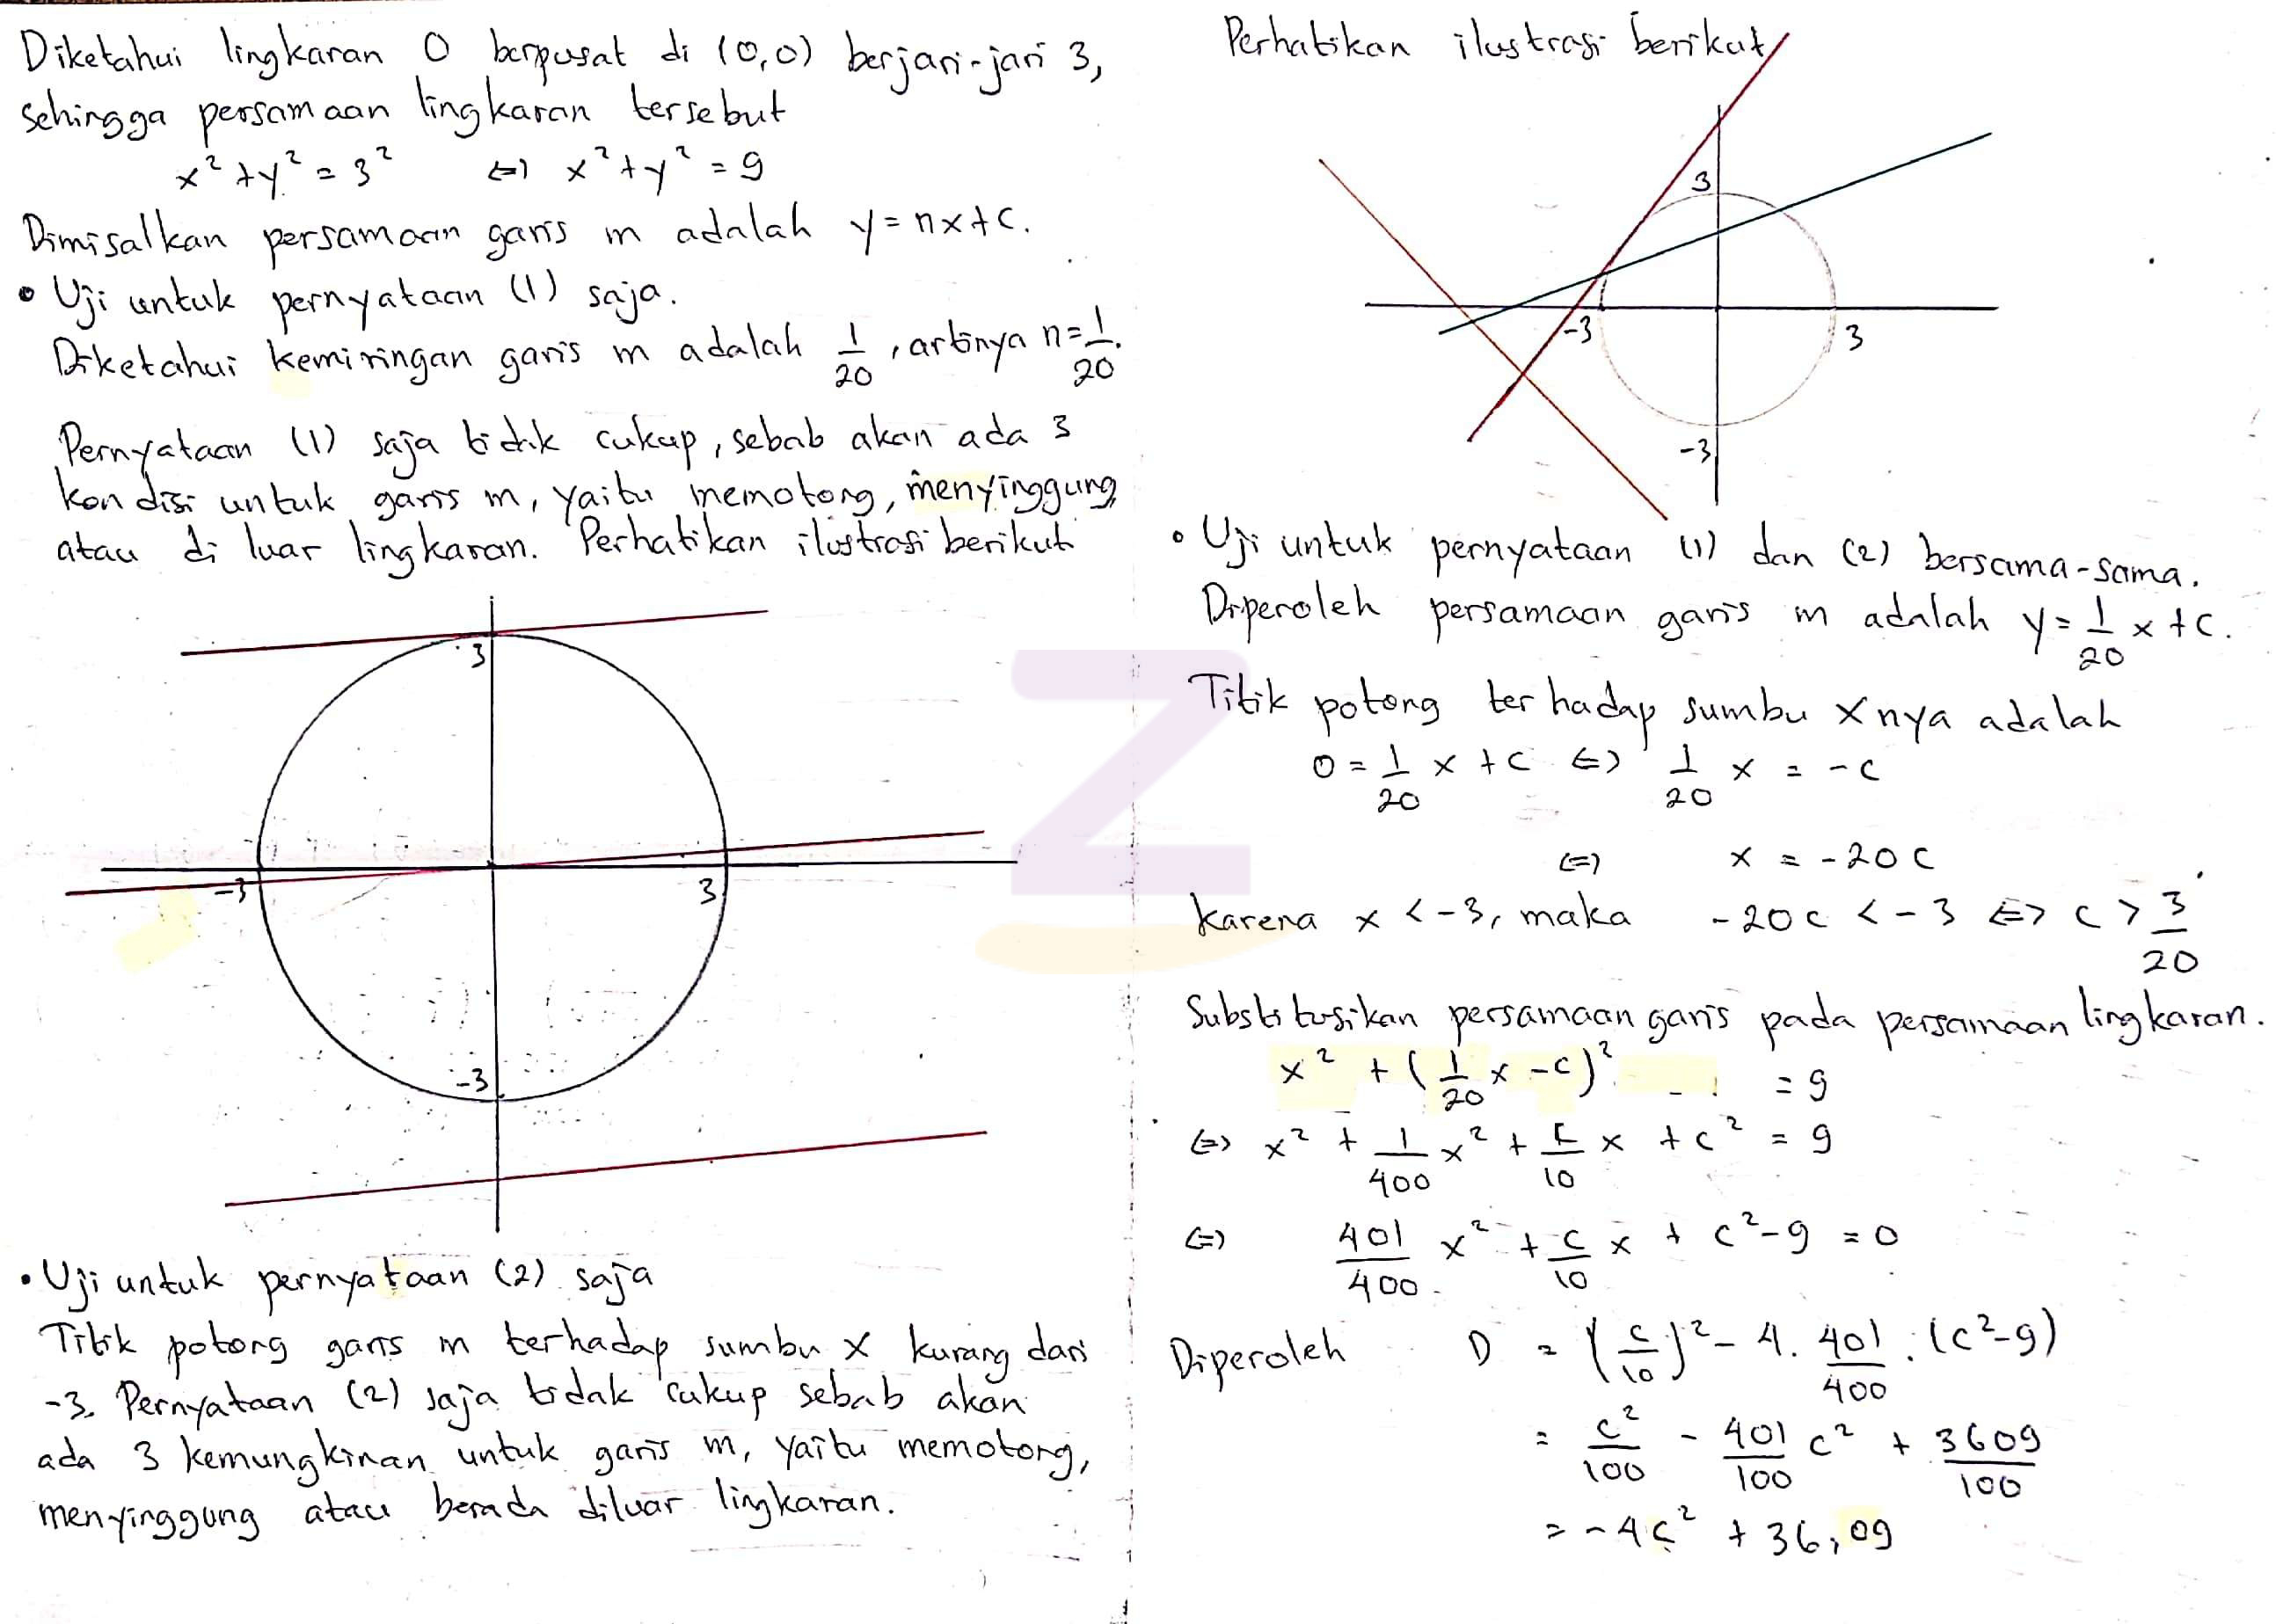 Diketahui lingkaran O berpusat di (0,0) berjari-jari 3,
sehingga persamaan lingkaran tersebut
x² + y² = 3² ⇔ x² + y² = 9
Dimisalkan persamaan garis m adalah y = nx + c.
• Uji untuk pernyataan (1) saja.
Diketahui kemiringan garis m adalah 1/20, artinya n = 1/20.
Pernyataan (1) saja tidak cukup, sebab akan ada 3
kondisi untuk garis m, yaitu memotong, menyinggung
atau di luar lingkaran. Perhatikan ilustrasi berikut
3
-3
3
-3
• Uji untuk pernyataan (2) saja
Titik potong garis m terhadap sumbu x kurang dari
-3. Pernyataan (2) saja tidak cukup sebab akan
ada 3 kemungkinan untuk garis m, yaitu memotong,
menyinggung atau berada diluar lingkaran.
Perhatikan ilustrasi berikut
3
-3
3
-3
• Uji untuk pernyataan (1) dan (2) bersama-sama.
Diperoleh persamaan garis m adalah y = 1/20 x + c.
Titik potong terhadap sumbu x nya adalah
0 = 1/20 x + c ⇔ 1/20 x = -c
⇔ x = -20c
Karena x < -3, maka -20c < -3 ⇔ c > 3/20
Substitusikan persamaan garis pada persamaan lingkaran.
x² + (1/20 x - c)² = 9
⇔ x² + 1/400 x² + c/10 x + c² = 9
⇔ 401/400 x² + c/10 x + c² - 9 = 0
Diperoleh D = (c/10)² - 4 . 401/400 . (c² - 9)
= c²/100 - 401/100 c² + 3609/100
= -4c² + 36,09